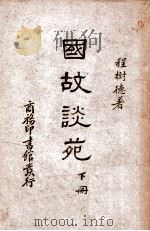 程樹德著
國故談苑
下冊
商務印書館發行